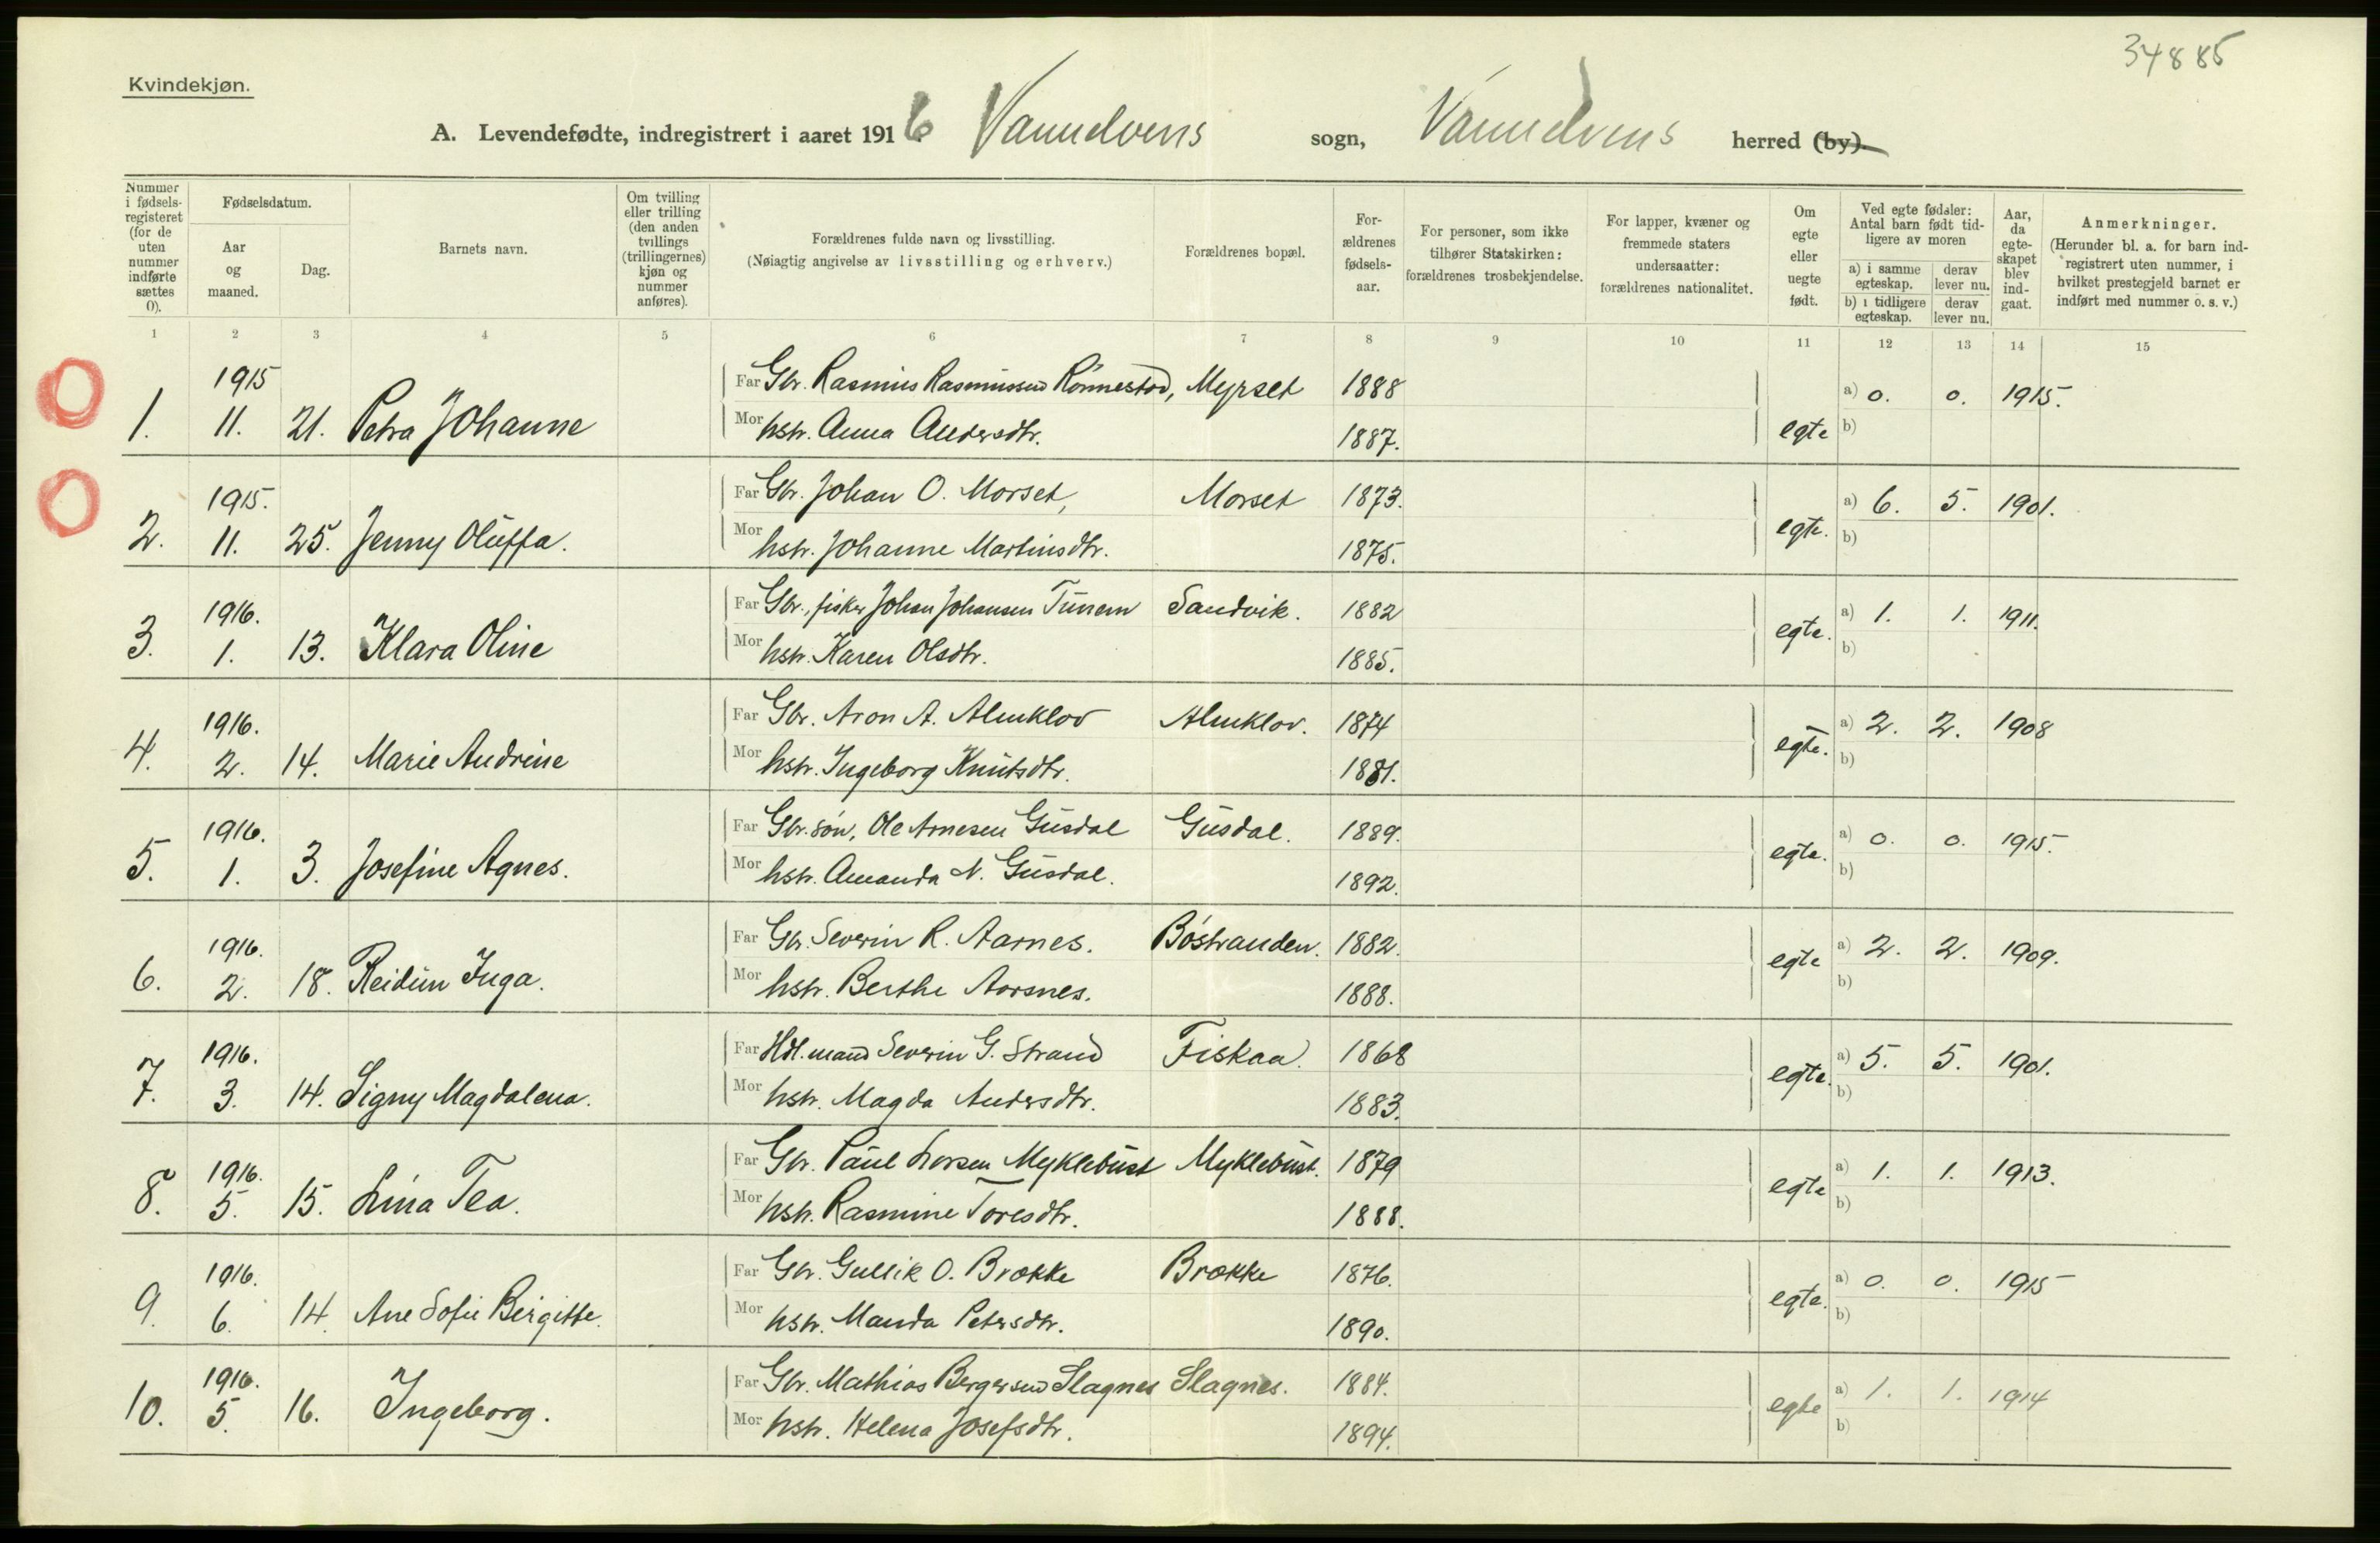 34885
Kvindekjøn.
A. Levendefødte, indregistrert i aaret 1916 Vannelvens sogn, Vannelvens herred (by).
Nummer i fødselsregisteret (for de uten nummer indførte sættes 0).
Fødselsdatum.
Aar og maaned.
Dag.
Barnets navn.
Om tvilling eller trilling (den anden tvillings (trillingernes) kjøn og nummer anføres).
Forældrenes fulde navn og livsstilling.
(Nøiagtig angivelse av livsstilling og erhverv.)
Forældrenes bopæl.
Forældrenes fødselsaar.
For personer, som ikke tilhører Statskirken: forældrenes trosbekjendelse.
For lapper, kvæner og fremmede staters undersaatter: forældrenes nationalitet.
Om egte eller uegte født.
Ved egte fødsler: Antal barn født tidligere av moren
a) i samme egteskap. derav lever nu.
b) i tidligere egteskap. derav lever nu.
Aar, da egteskapet blev indgaat.
Anmerkninger.
(Herunder bl. a. for barn indregistrert uten nummer, i hvilket prestegjeld barnet er indført med nummer o. s. v.)
1 2 3 4 5 6 7 8 9 10 11 12 13 14 15
1915 Far Gbr. Rasmus Rasmussen Rönnestad, Myrset 1888 a) 0. 0. 1915.
1. 11. 21. Petra Johanne Mor hstr. Anna Andersdtr. 1887. egte b)
1915. Far Gbr. Johan O. Morset, Morset 1873. a) 6. 5. 1901.
2. 11. 25. Jenny Oluffa. Mor hstr. Johanne Martinsdtr. 1875. egte. b)
1916. Far Gbr., fisker Johan Johansen Tunem Sandvik. 1882 a) 1. 1. 1911.
3. 1. 13. Klara Oline Mor hstr. Karen Olsdtr. 1885. egte. b)
1916. Far Gbr. Aron A. Almklov Almklov. 1874 a) 2. 2. 1908
4. 2. 14. Marie Andrine Mor hstr. Ingeborg Knutsdtr. 1881. egte. b)
1916. Far Gbr. søn, Ole Arnesen Gusdal Gusdal. 1889. a) 0. 0. 1915.
5. 1. 3. Josefine Agnes. Mor hstr. Amanda N. Gusdal. 1892. egte. b)
1916. Far Gbr. Severin R. Aarnes. Böstranden. 1882. a) 2. 2. 1909.
6. 2. 18. Reidun Inga. Mor hstr. Berthe Aarsnes. 1888. egte b)
1916. Far Hdl.mand Severin G. Strand Fiskaa. 1868 a) 5. 5. 1901.
7. 3. 14. Signy Magdalena. Mor hstr. Magda Andersdtr. 1883. egte. b)
1916. Far Gbr. Paul Larsen Myklebust Myklebust. 1879 a) 1. 1. 1913.
8. 5. 15. Lina Tea. Mor hstr. Rasmine Toresdtr. 1888. egte b)
1916. Far Gbr. Gullik O. Brække Brække 1876. a) 0. 0. 1915
9. 6. 14. Ane Sofie Birgitte. Mor hstr. Manda Petersdtr. 1890. egte. b)
1916. Far Gbr. Mathias Bergersen Slagnes Slagnes. 1884. a) 1. 1. 1914
10. 5. 16. Ingeborg. Mor hstr. Helena Josefsdtr. 1894. egte b)